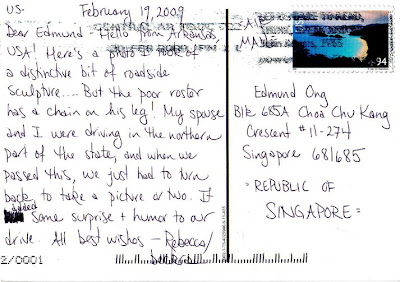 US.
February 19, 2009
Dear Edmund - Hello from Arkansas,
USA! Here's a photo I took of
a distinctive bit of roadside
sculpture.... But the poor roster
has a chain on his leg! My spouse
and I were driving in the northern
part of the state, and when we
passed this, we just had to turn
back to take a picture or two. It
added some surprise + humor to our
drive. All best wishes - Rebecca/
2/0001
AIR
MAIL
94
Edmund Ong
Blk 685A Choa Chu Kang
Crescent #11-274
Singapore 681685
- REPUBLIC OF
SINGAPORE -